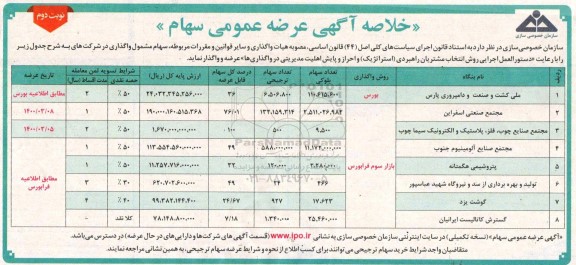 نوبت دوم
«خلاصه آگهی عرضه عمومی سهام»
سازمان خصوصی سازی
سازمان خصوصی سازی در نظر دارد به استناد قانون اجرای سیاست‌های کلی اصل (۴۴) قانون اساسی، مصوبه هیات واگذاری و سایر قوانین و مقررات مربوطه، سهام مشمول واگذاری در شرکت های به شرح جدول زیر
را با رعایت «دستورالعمل اجرایی روش انتخاب مشتریان راهبردی (استراتژیک) و احراز و پایش اهلیت مدیریتی در واگذاری‌ها» عرضه و واگذار نماید.
ردیف نام بنگاه روش واگذاری تعداد سهام بلوکی تعداد سهام ترجیحی درصد کل سهام قابل عرضه ارزش پایه کل (ریال) شرایط تسویه ثمن معامله حصه نقدی مدت اقساط (سال) تاریخ عرضه
۱ ملی کشت و صنعت و دامپروری پارس بورس ۱۱۰،۶۱۵،۶۰۰ ۶،۵۰۶،۸۰۰ ۳۶ ۵۰ ٪ ۲ مطابق اطلاعیه بورس
۲ مجتمع صنعتی اسفراین ۲،۵۱۱،۰۲۶،۹۸۲ ۱۳۴،۱۵۹،۳۱۴ ۷۶/۰۱ ۱۹۰،۰۰۰،۱۶۰،۵۱۵،۳۶۸ ۵۰ ٪ ۱ ۱۴۰۰/۰۳/۰۸
۳ مجتمع صنایع چوب، فلز، پلاستیک و الکترونیک سیما چوب ۹،۵۰۰ ۵۰۰ ۱۰۰ ۱،۶۷۰،۰۰۰،۰۰۰،۰۰۰ ۵۰ ٪ ۲ ۱۴۰۰/۰۳/۰۵
۴ مجتمع صنایع آلومینیوم جنوب بازار سوم فرابورس ۱۱،۱۷۲،۰۰۰،۰۰۰ ۵۸۸،۰۰۰،۰۰۰ ۴۹ ۱۱۳،۵۵۴،۵۶۰،۰۰۰،۰۰۰ ۵۰ ٪ ۱ مطابق اطلاعیه فرابورس
۵ پتروشیمی هگمتانه ۱۲۰،۰۰۰ ۱۱،۲۵۷،۷۱۶،۰۰۰،۰۰۰ ۵۰ ٪ ۱
۶ تولید و بهره برداری از سد و نیروگاه شهید عباسپور ۴۶۶ ۲۴ ۴۹ ۶۲۰،۷۰۲،۶۰۰،۰۰۰ ۳۰ ٪ ۳
۷ گوشت یزد ۱۷،۶۲۳ ۹۲۷ ۲۶/۶۷ ۹۹،۳۸۲،۱۴۴،۴۰۰ ۲۰ ٪ ۴
۸ گسترش کاتالیست ایرانیان ۲۵،۴۶۰،۰۰۰ ۱،۳۴۰،۰۰۰ ۷/۱۸ ۷۸،۱۴۸،۸۰۰،۰۰۰ کلا نقد -
«آگهی عرضه عمومی سهام» (نسخه تکمیلی) در سایت اینترنتی سازمان خصوصی سازی به نشانی www.ipo.ir (قسمت آگهی های شرکت‌ها و دارایی‌های در حال عرضه) در دسترس می‌باشد.
متقاضیان واجد شرایط خرید سهام ترجیحی می‌توانند برای کسب اطلاع از نحوه و شرایط عرضه سهام ترجیحی، به همین نشانی مراجعه نمایند.